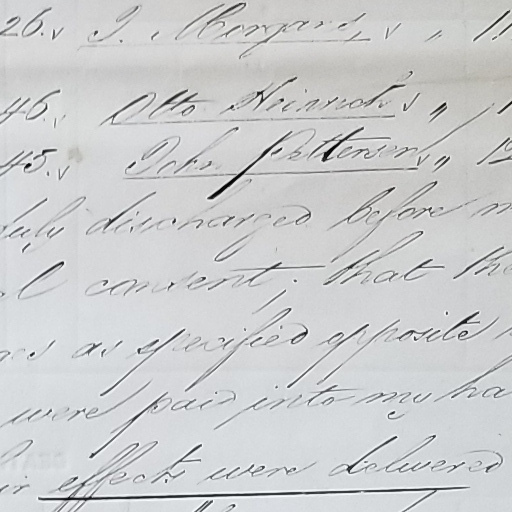 26. J. Morgan's, " 11
46. Otto Heinrich's " 1
45. John Petterson's, " 12
duly discharged before m
l consent; that the
es as specified opposite
were paid into my ha
ir effects were delivered